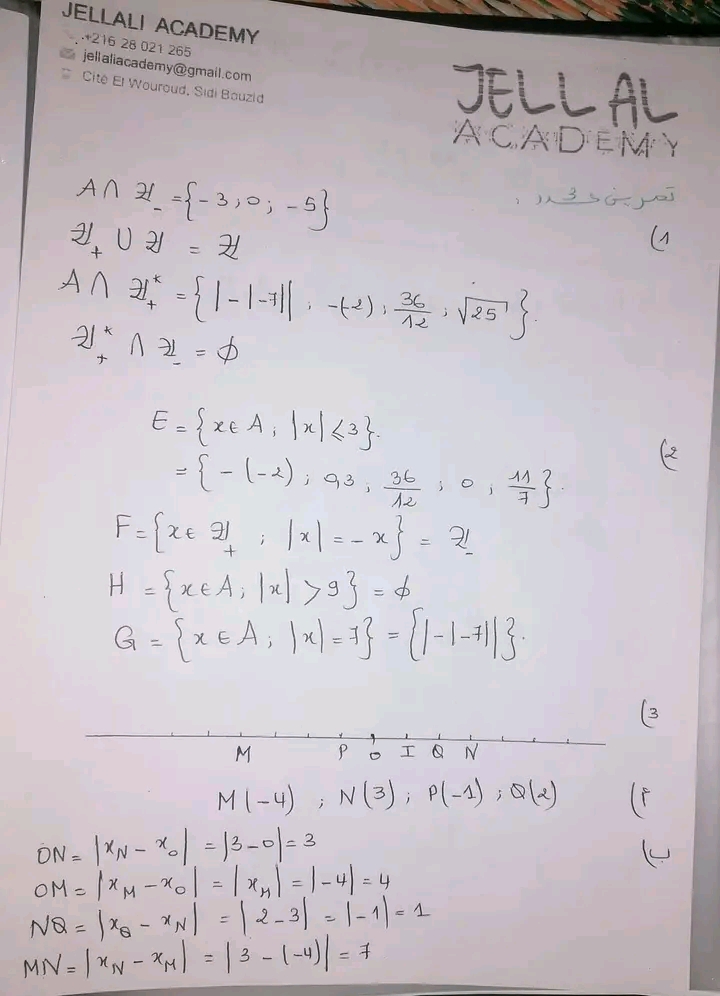 JELLALI ACADEMY
+216 28 021 265
jellaliacademy@gmail.com
Cité El Wouroud, Sidi Bouzid
JELLAL
ACADEMY
تمرين عدد 3 :
(1
A ∩ ℤ₋ = {-3 ; 0 ; -5}
ℤ₊ ∪ ℤ = ℤ
A ∩ ℤ₊* = {|-|-7|| ; -(-2) ; 36/12 ; √25}.
ℤ₊* ∩ ℤ₋ = ∅
(2
E = {x ∈ A ; |x| ≤ 3}.
= {-(-2) ; 0,3 ; 36/12 ; 0 ; 11/7}.
F = {x ∈ ℤ₊ ; |x| = -x} = ℤ₋
H = {x ∈ A ; |x| > 9} = ∅
G = {x ∈ A ; |x| = 7} = {|-|-7||}.
(3
M P O I Q N
(أ M(-4) ; N(3) ; P(-1) ; Q(2)
(ب
ON = |x_N - x_O| = |3 - 0| = 3
OM = |x_M - x_O| = |x_M| = |-4| = 4
NQ = |x_Q - x_N| = |2 - 3| = |-1| = 1
MN = |x_N - x_M| = |3 - (-4)| = 7